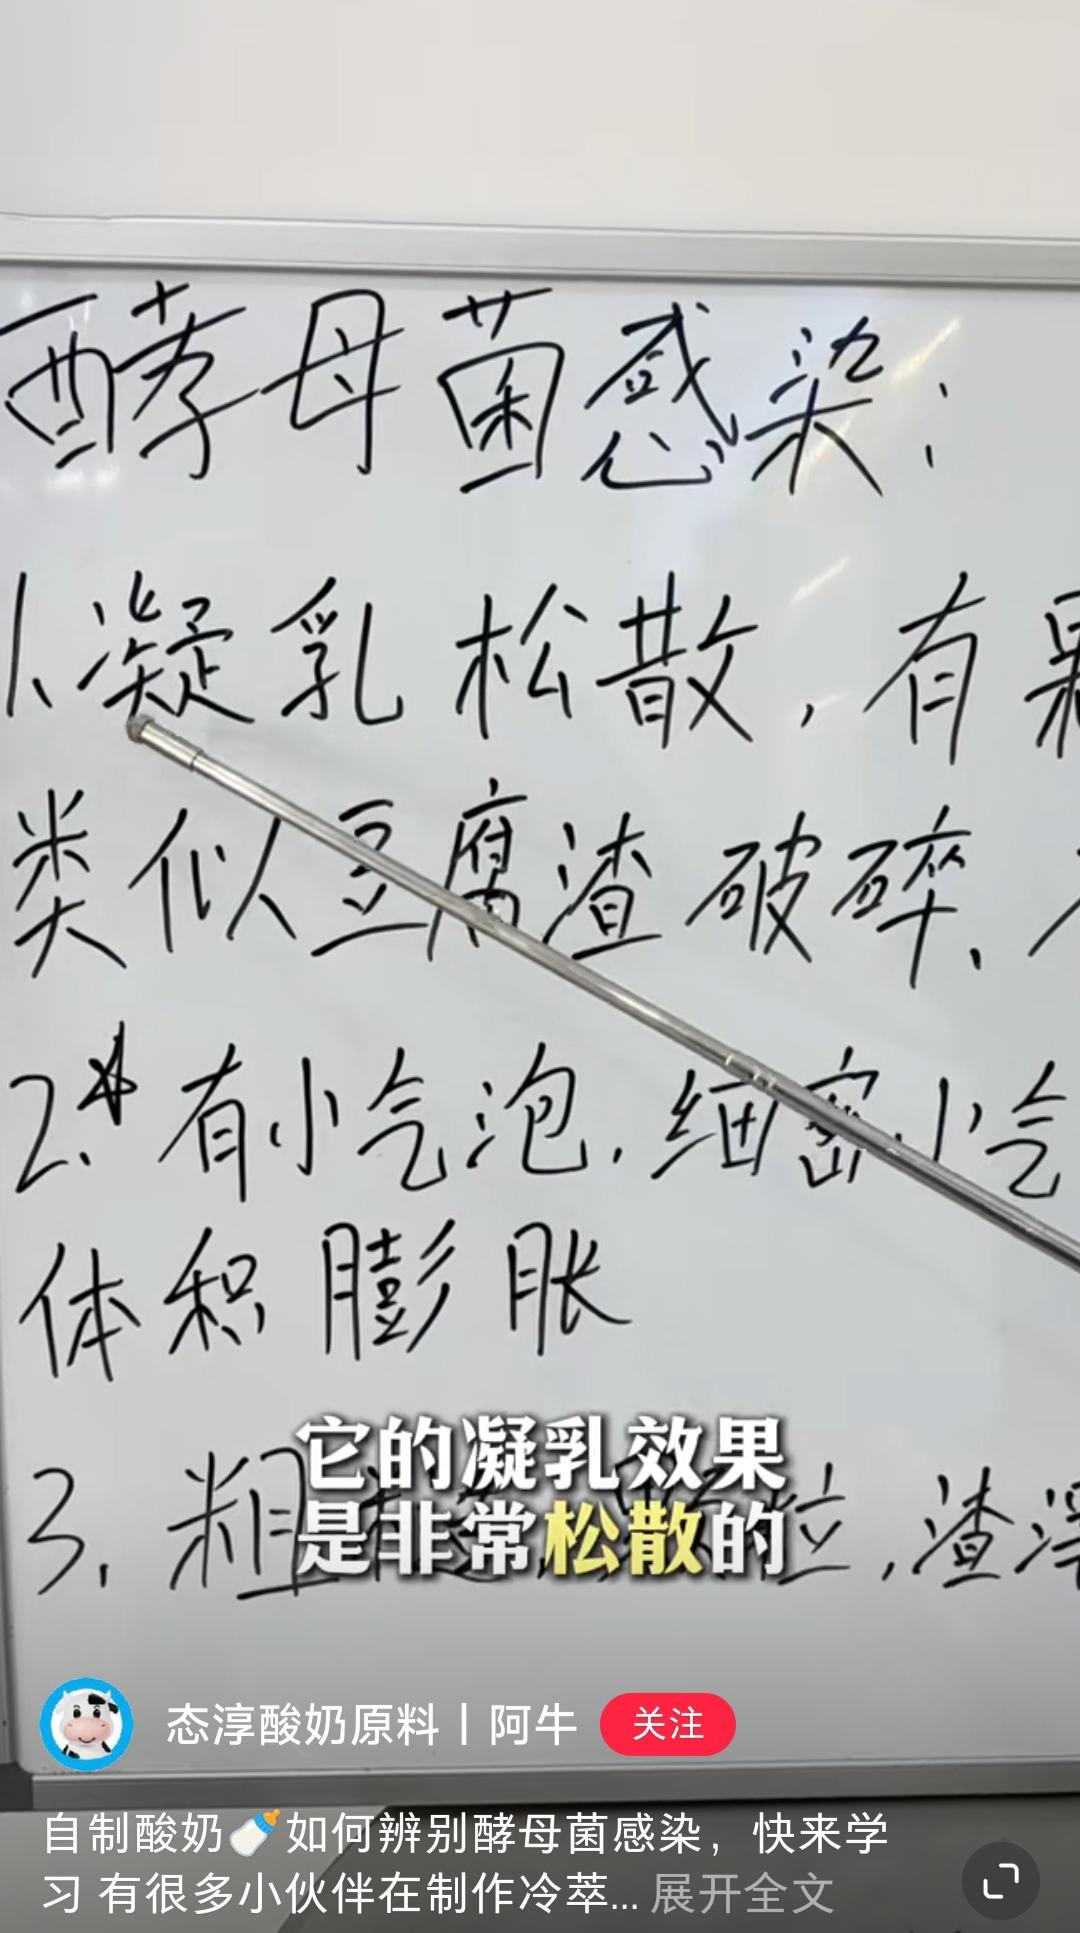 酵母菌感染:
1、凝乳松散,有
类似豆腐渣破碎、
2、有小气泡,细密小气
体积膨胀
它的凝乳效果
是非常松散的
3、粗 粒,渣
态淳酸奶原料丨阿牛 关注
自制酸奶🍼如何辨别酵母菌感染，快来学
习 有很多小伙伴在制作冷萃... 展开全文